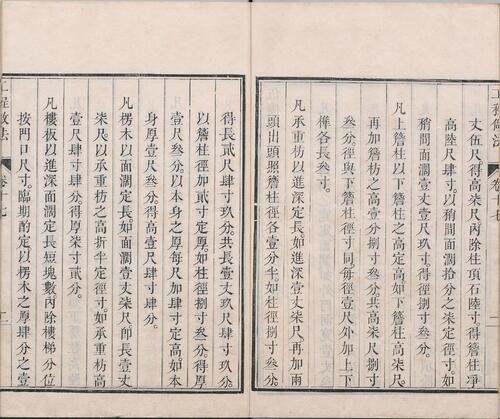 工程做法 卷十七
丈伍尺得高柒尺。内除柱頂石陸寸。得簷柱淨
高陸尺肆寸。以稍間面濶拾分之柒定徑寸。如
稍間面濶壹丈玖寸。得徑捌寸叁分。
凡上簷柱以下簷柱定高。如下簷柱高柒尺。
再加簷枋之高壹分捌寸叁分。共高柒尺捌寸
叁分。徑與下簷柱徑寸同。每徑壹尺。外加上下
榫各長叁寸。
凡承重枋以進深定長。如進深壹丈柒尺。再加兩
頭出頭照簷柱徑各壹分半。如柱徑捌寸叁分。
得長貳尺肆寸玖分。共長壹丈玖尺肆寸玖分。
以簷柱徑加貳寸定厚。如柱徑捌寸叁分。得厚
壹尺叁分。以本身之厚每尺加肆寸定高。如本
身厚壹尺叁分。得高壹尺肆寸肆分。
凡楞木以面濶定長。如面濶壹丈柒尺。即長壹丈
柒尺。以承重枋之高折半定徑寸。如承重枋高
壹尺肆寸肆分。得厚柒寸貳分。
凡樓板以進深面濶定長短塊數。内除樓梯分位
按門口尺寸。臨期酌定。以楞木之厚肆分之壹
工程做法 卷十七 二